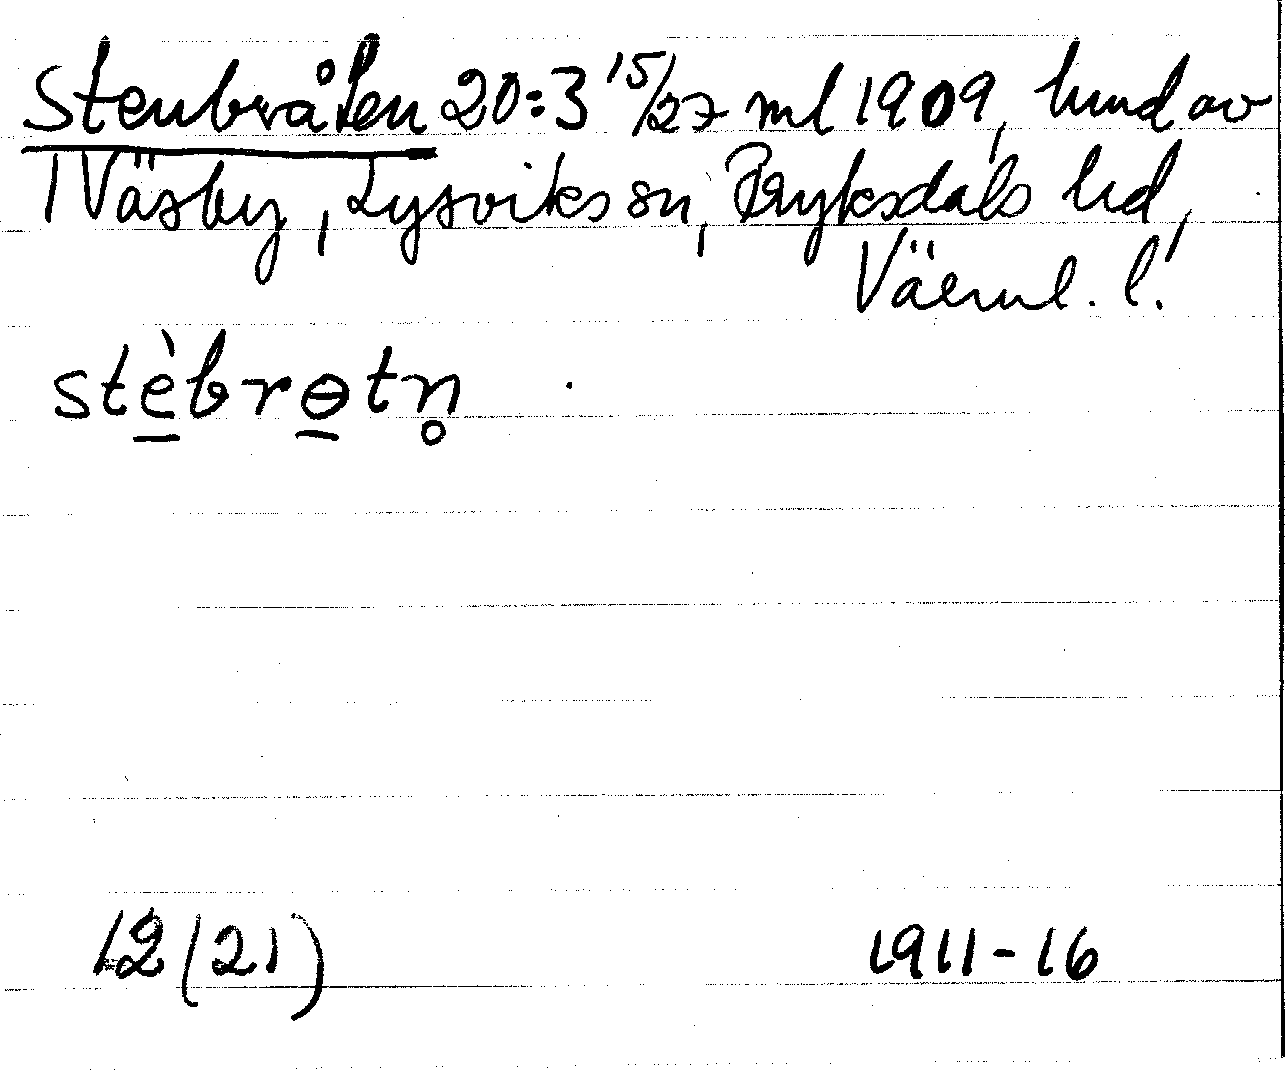 Stenbråten 20:3 15/27 ml 1909, lund av
1 Väsby, Lysviks sn, Fryksdals hd,
Värml. l.
stèbrɵtn̥
12 (21) 1911-16